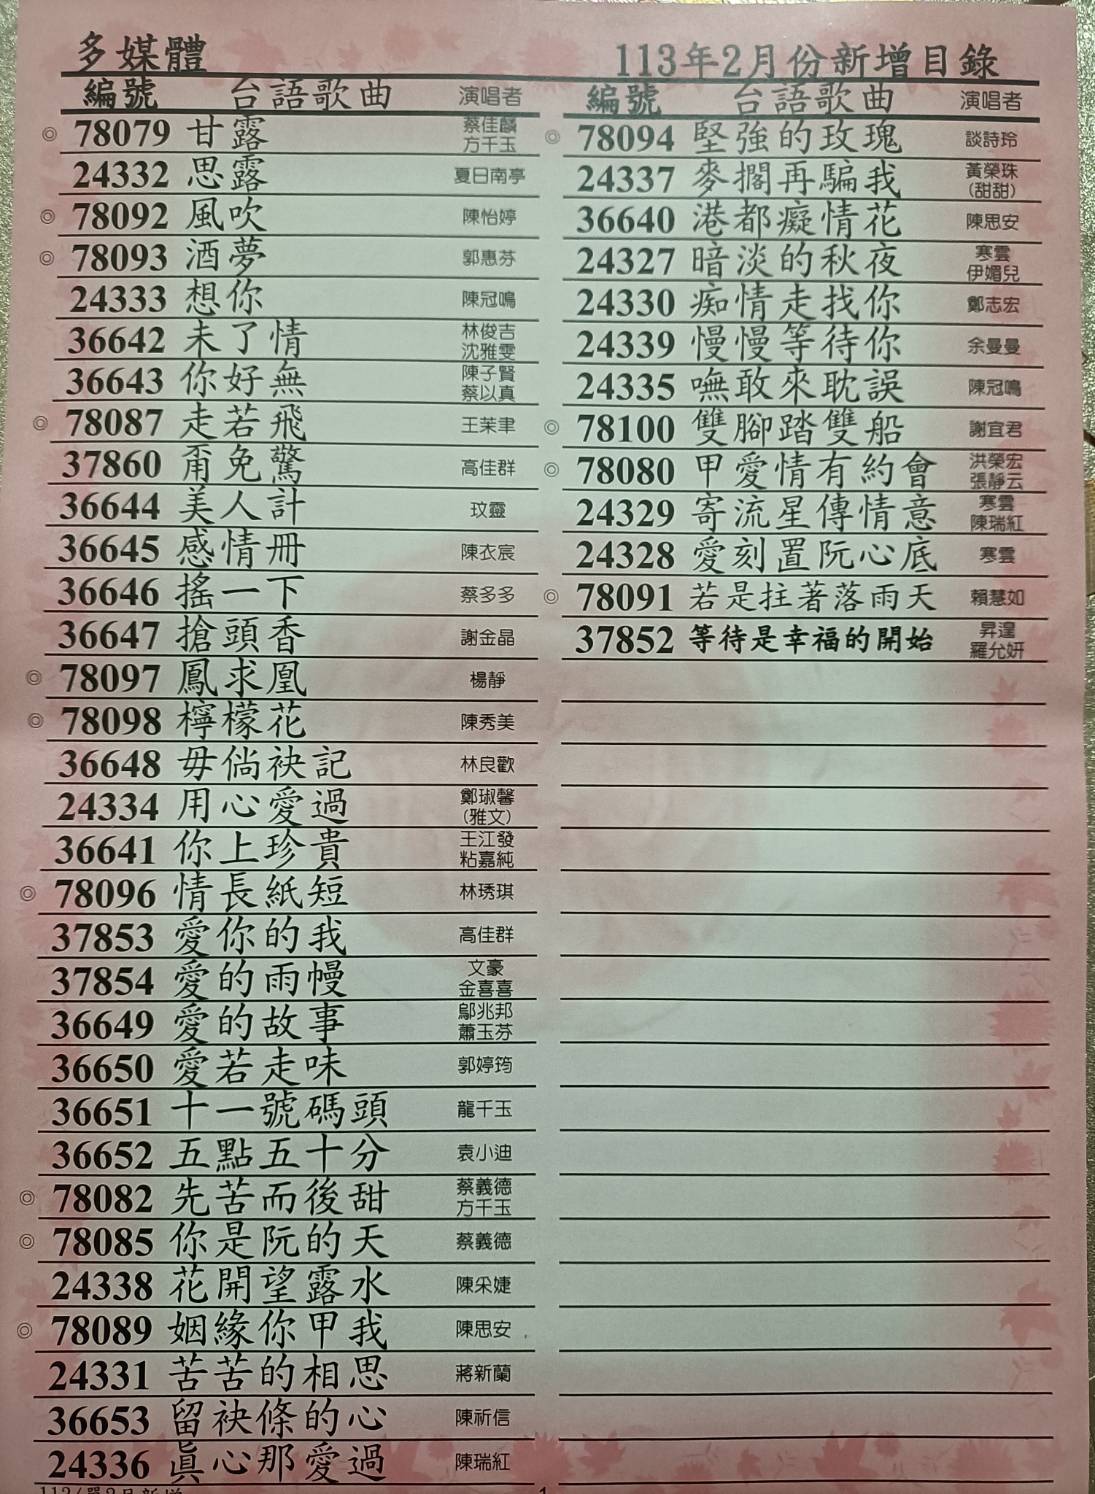 多媒體
113年2月份新增目錄
編號 台語歌曲 演唱者
◎ 78079 甘露 蔡佳麟 方千玉
24332 思露 夏日南亭
◎ 78092 風吹 陳怡婷
◎ 78093 酒夢 郭惠芬
24333 想你 陳冠鳴
36642 未了情 林俊吉 沈雅雯
36643 你好無 陳子賢 蔡以真
◎ 78087 走若飛 王茉聿
37860 甭免驚 高佳群
36644 美人計 玟靈
36645 感情冊 陳衣宸
36646 搖一下 蔡多多
36647 搶頭香 謝金晶
◎ 78097 鳳求凰 楊靜
◎ 78098 檸檬花 陳秀美
36648 毋倘袂記 林良歡
24334 用心愛過 鄭琡馨 (雅文)
36641 你上珍貴 王江發 粘嘉純
◎ 78096 情長紙短 林琇琪
37853 愛你的我 高佳群
37854 愛的雨幔 文豪 金喜喜
36649 愛的故事 鄔兆邦 蕭玉芬
36650 愛若走味 郭婷筠
36651 十一號碼頭 龍千玉
36652 五點五十分 袁小迪
◎ 78082 先苦而後甜 蔡義德 方千玉
◎ 78085 你是阮的天 蔡義德
24338 花開望露水 陳采婕
◎ 78089 姻緣你甲我 陳思安
24331 苦苦的相思 蔣新蘭
36653 留袂條的心 陳祈信
24336 真心那愛過 陳瑞紅
編號 台語歌曲 演唱者
◎ 78094 堅強的玫瑰 談詩玲
24337 麥擱再騙我 黃榮珠 (甜甜)
36640 港都癡情花 陳思安
24327 暗淡的秋夜 寒雲 伊媚兒
24330 痴情走找你 鄭志宏
24339 慢慢等待你 余曼曼
24335 嘸敢來耽誤 陳冠鳴
◎ 78100 雙腳踏雙船 謝宜君
◎ 78080 甲愛情有約會 洪榮宏 張靜云
24329 寄流星傳情意 寒雲 陳瑞紅
24328 愛刻置阮心底 寒雲
◎ 78091 若是拄著落雨天 賴慧如
37852 等待是幸福的開始 昇湟 羅允妍